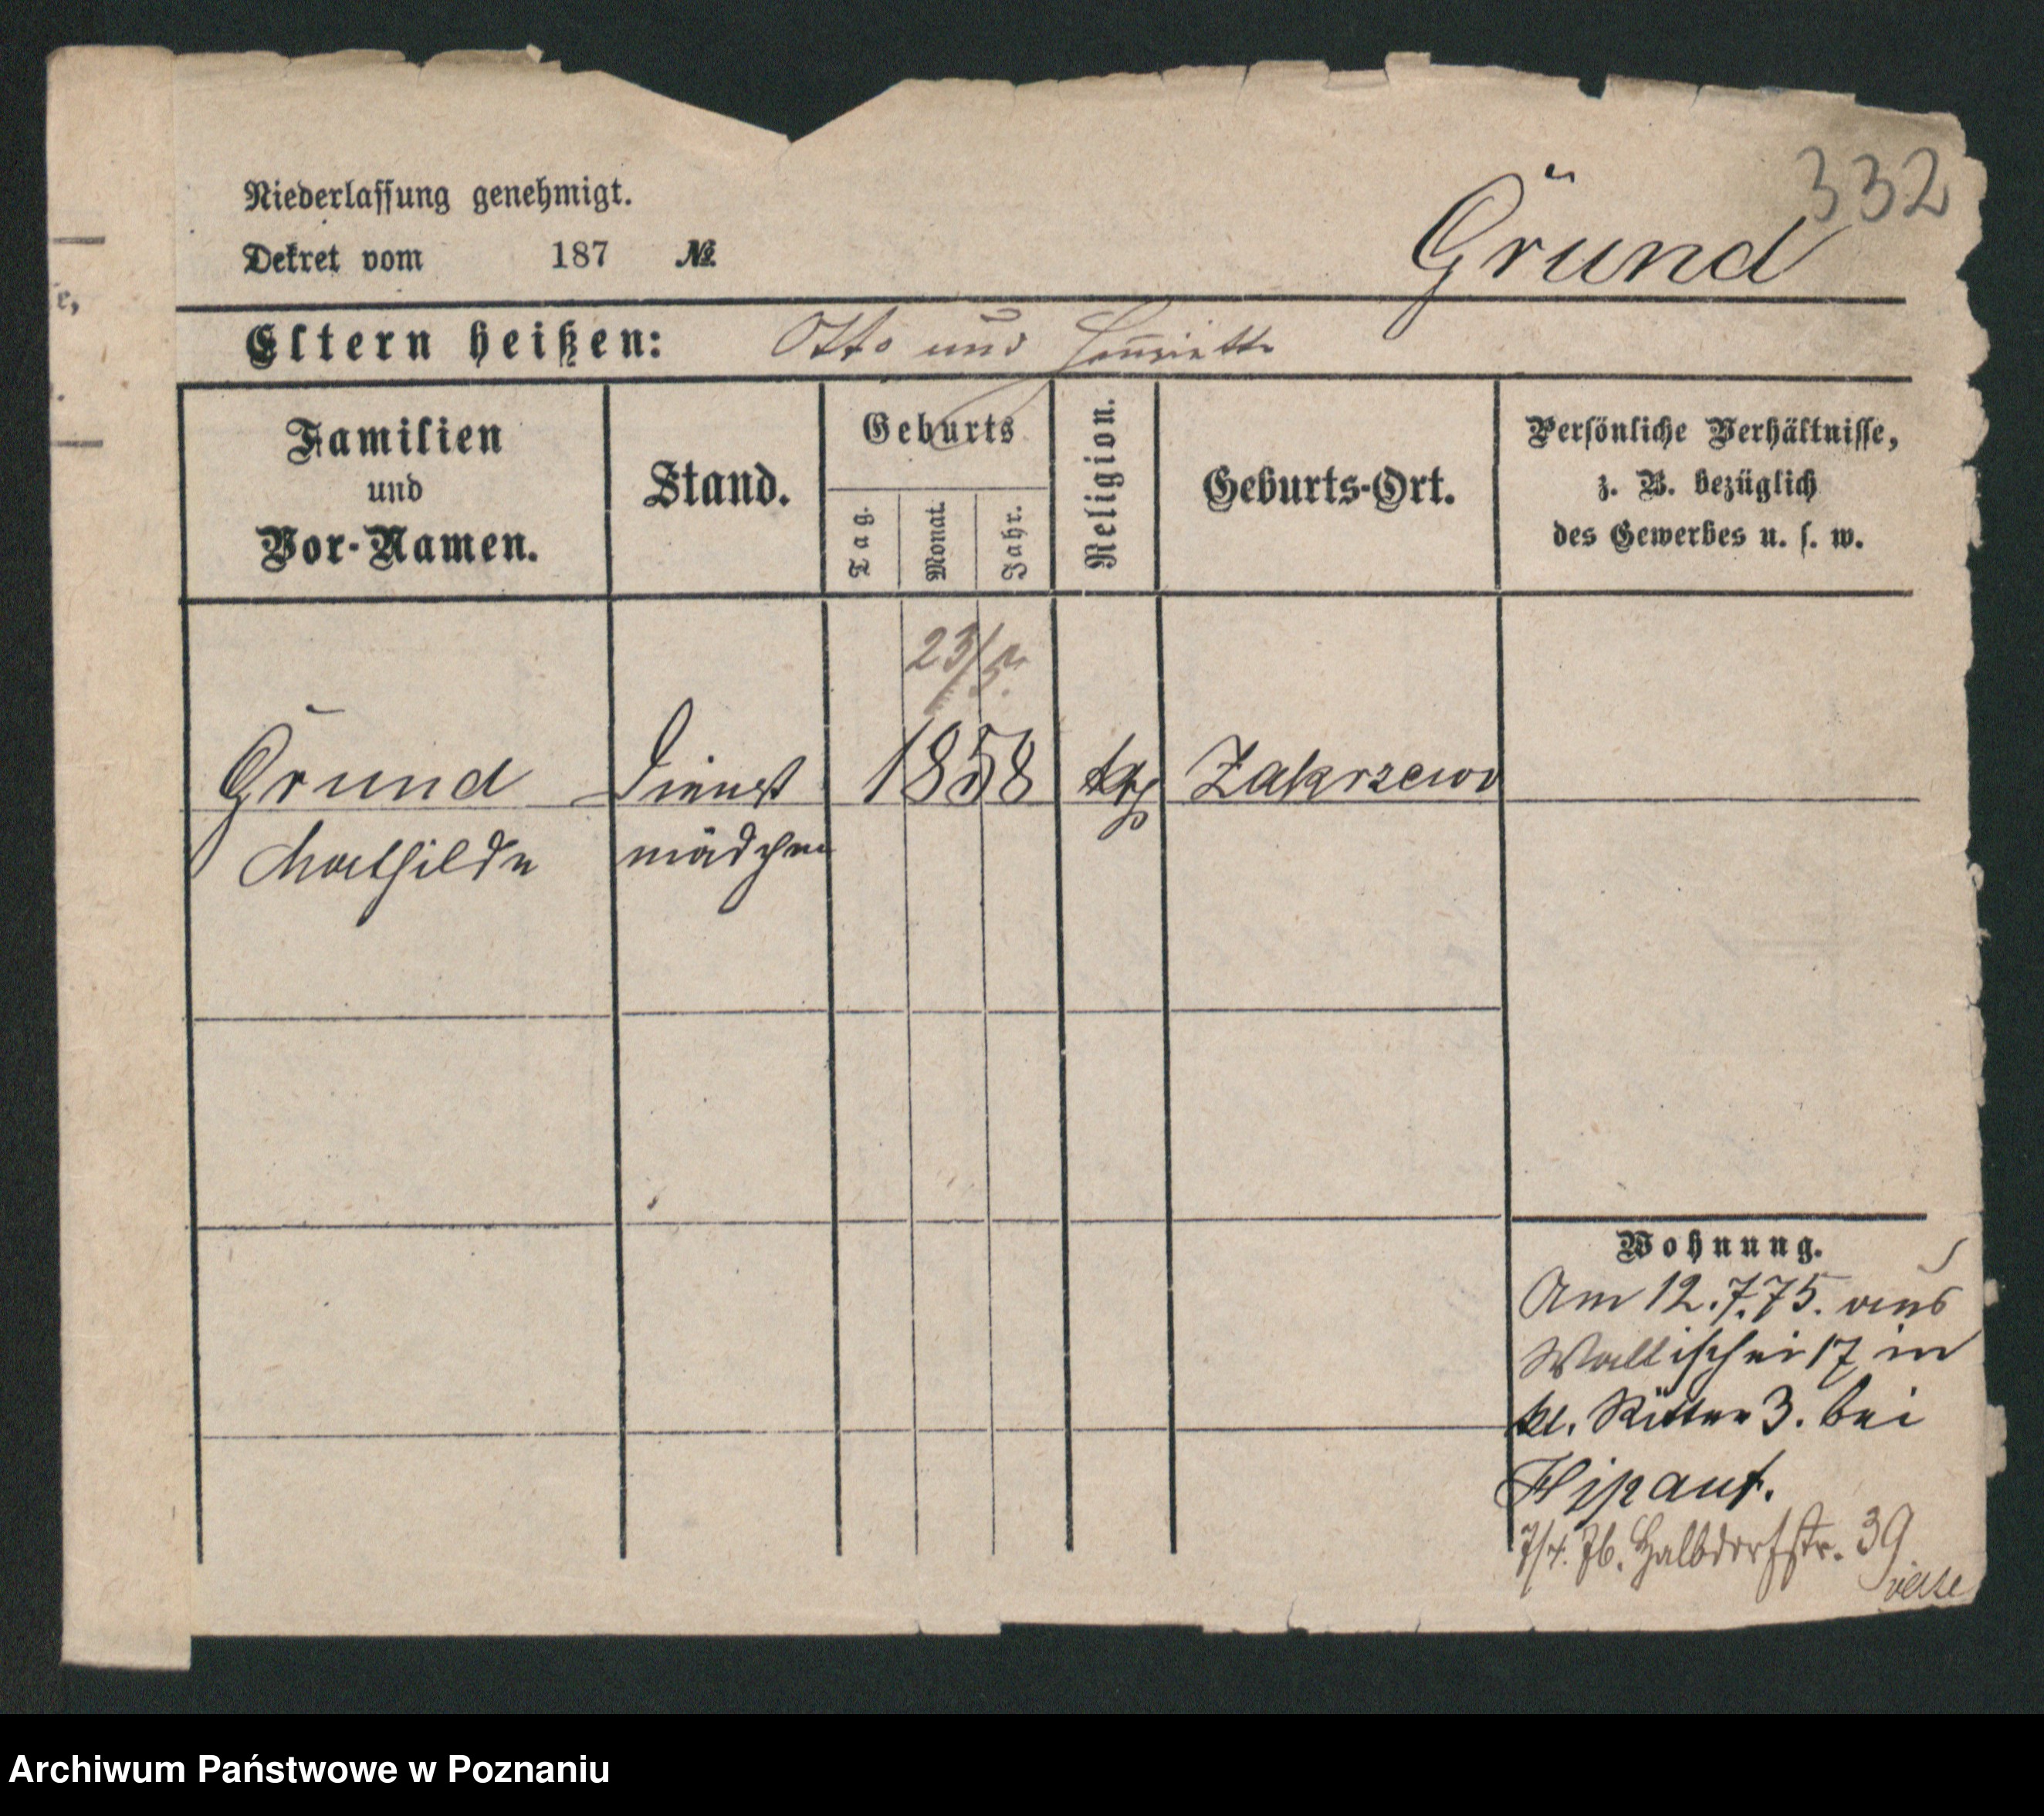 332
Niederlassung genehmigt.
Gründ
Dekret vom 187 №
e,
Eltern heißen: Otto und Henriette
Familien
und
Vor-Namen.
Stand.
Geburts
Tag.
Monat.
Jahr.
Religion.
Geburts-Ort.
Persönliche Verhältnisse,
z. B. bezüglich
des Gewerbes u. s. w.
23/5.
Gründ Dienst 1858 Zakrzewo
Mathilde mädchen
Wohnung.
Am 12.7.75. aus
Wallischei 17 in
kl. Ritter 3. bei
7/4. 76. Halbdorfstr. 39
Archiwum Państwowe w Poznaniu